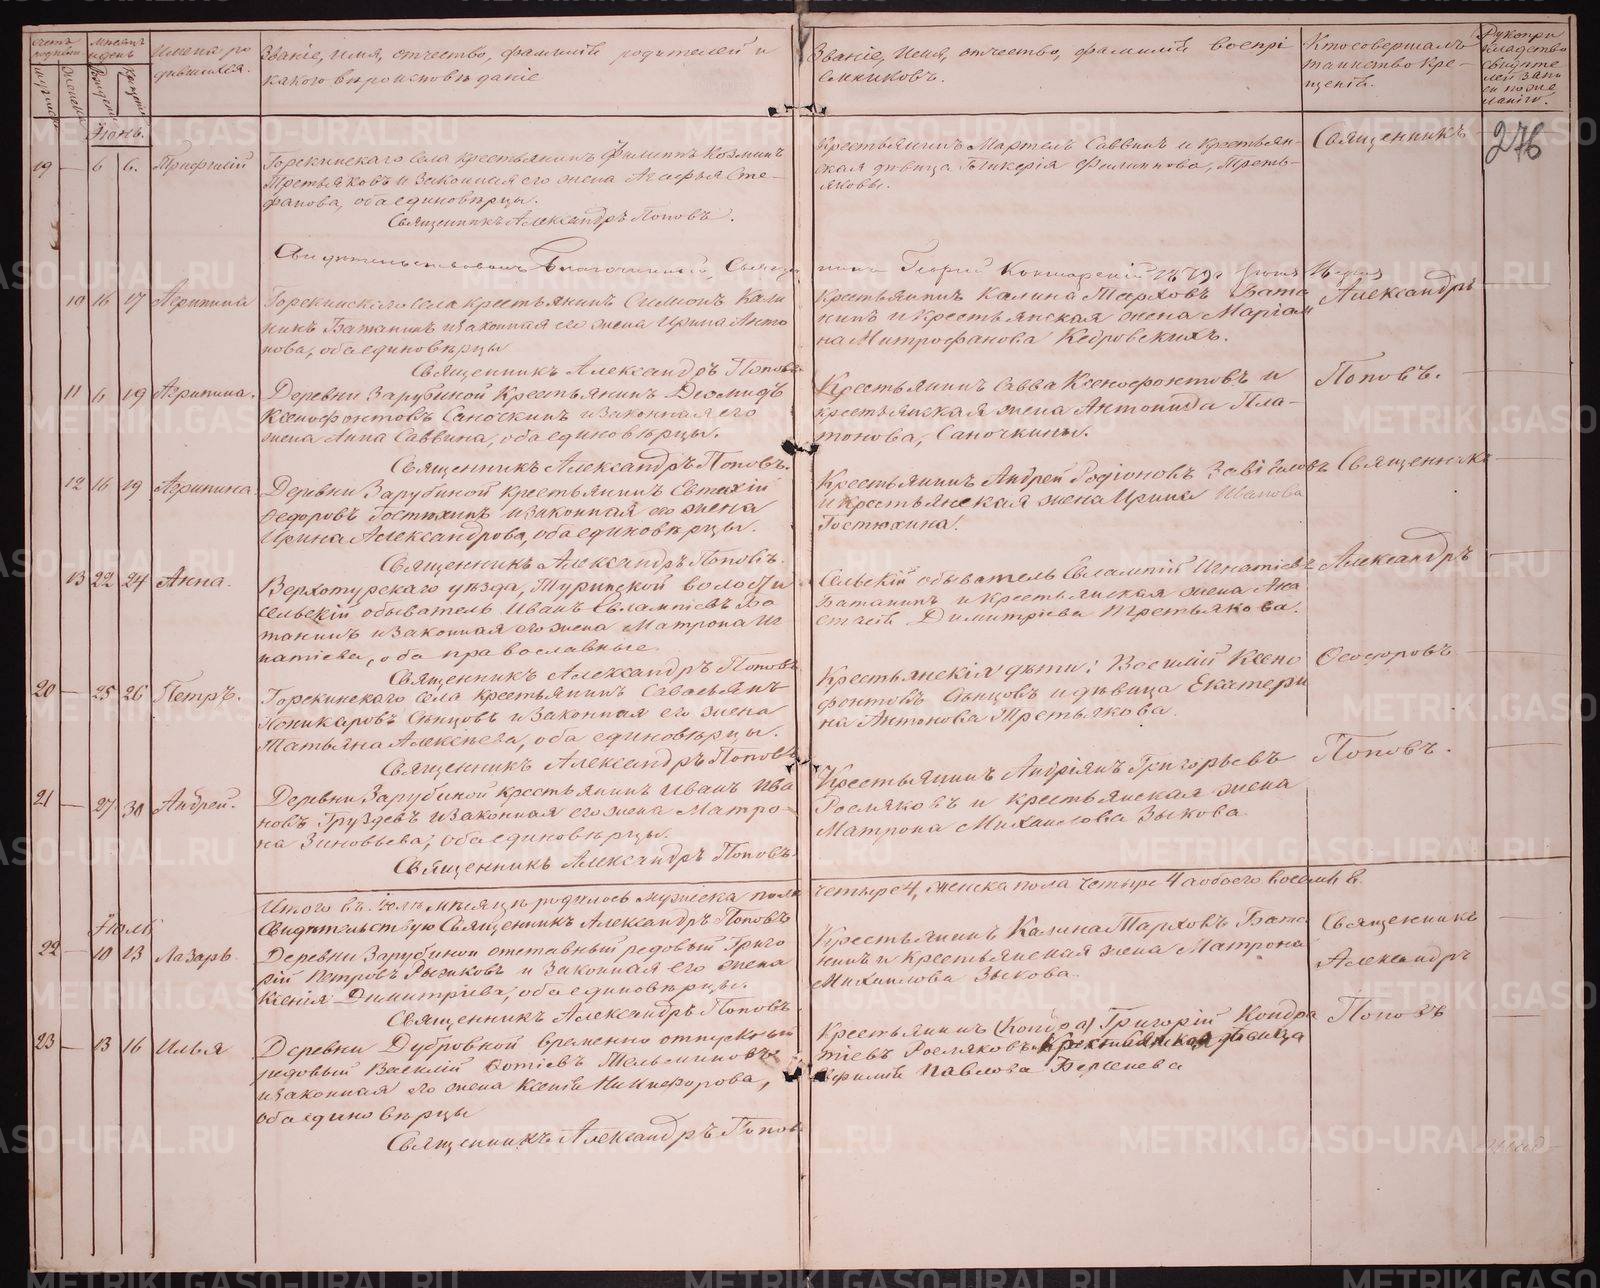 Счетъ родившихся
Мѣсяцъ и день
Имена родившихся.
Званіе, имя, отчество, фамилія родителей и
какого вѣроисповѣданія
Званіе, имя, отчество, фамилія воспрі
емниковъ.
Кто совершалъ
таинство кре-
щенія.
Рукопри
кладство
свидѣте
лей запи
си по же
ланію.
276
Іюнь.
19 — 6 6. Трифилій
Горскинскаго села крестьянинъ Филиппъ Козминъ
Третьяковъ и законная его жена Агафья Сте-
фанова, оба единовѣрцы.
Священникъ Александръ Поповъ.
Крестьянинъ Мартелъ Саввинъ и крестьян-
ская дѣвица Гликерія Филиппова, Треть-
яковы.
Священникъ
Свидѣтельствовалъ Благочинный, Священникъ Георгій
10 16 17 Агрипина
Горскинскаго села крестьянинъ Симеонъ Кали
никъ Батанинъ и законная его жена Ирина Анто
нова, оба единовѣрцы
Священникъ Александръ Поповъ
Крестьянинъ Калина Тарховъ Бата
нинъ и крестьянская жена Маріам
на Митрофанова Кедровскихъ.
Александръ
11 6 19 Агрипина.
Деревни Зарубиной крестьянинъ Діомидъ
Ксенофонтовъ Саночкинъ и законная его
жена Анна Саввина, оба единовѣрцы.
Священникъ Александръ Поповъ.
Крестьянинъ Савва Ксенофонтовъ и
крестьянская жена Антонида Пла-
тонова, Саночкины.
Поповъ.
12 16 19 Агрипина
Деревни Зарубиной крестьянинъ Евтихій
Ѳедоровъ Гостюхинъ и законная его жена
Ирина Александрова, оба единовѣрцы.
Священникъ Александръ Поповъ.
Крестьянинъ Андрей Родіоновъ
и крестьянская жена Ирина Иванова
Гостюхина.
Священникъ
13 22 24 Анна.
Верхотурскаго уѣзда, Туринской волости
сельскій обыватель Иванъ Евлампіевъ Ба
танинъ и законная его жена Матрона Иг
натіева, оба православные.
Священникъ Александръ Поповъ
Сельскій обыватель Евлампій Игнатіевъ
Батанинъ и крестьянская жена Ана
стасія Димитріева Третьякова.
Александръ
20 — 25 26 Петръ.
Горскинскаго села крестьянинъ Савватьянъ
Поникаровъ Сынцовъ и законная его жена
Татьяна Алексѣева, оба единовѣрцы.
Священникъ Александръ Поповъ
Крестьянскія дѣти: Василій Ксено
фонтовъ Сынцовъ и дѣвица Екатери
на Антонова Третьякова.
Ѳеодоровъ
21 — 27 30 Андрей.
Деревни Зарубиной крестьянинъ Иванъ Ива
новъ Груздевъ и законная его жена Матро-
на Зиновьева, оба единовѣрцы.
Священникъ Александръ Поповъ
Крестьянинъ Андріянъ Григорьевъ
Росляковъ и крестьянская жена
Матрона Михаилова Зыкова.
Поповъ.
Итого въ Іюнѣ мѣсяцѣ родилось мужеска пола четыре 4, женска пола четыре 4 а обоего восемь 8.
Свидѣтельствую Священникъ Александръ Поповъ
Іюль
22 — 10 13 Лазарь
Деревни Зарубиной отставный рядовый Григо
рій Петровъ Рыжковъ и законная его жена
Ксенія Димитріева, оба единовѣрцы.
Священникъ Александръ Поповъ.
Крестьянинъ Калина Тарховъ Бата
нинъ и крестьянская жена Матрона
Михаилова Зыкова.
Священникъ
Александръ
23 — 13 16 Илья
Деревни Дубровной временно отпускный
рядовый Василій Фотіевъ Мельниковъ
и законная его жена Ксенія Никифорова,
оба единовѣрцы
Священникъ Александръ Поповъ
Крестьянинъ (Кондра) Григорій Кондра
тіевъ Росляковъ крестьянская дѣвица
Павлова Берсенева
Поповъ
METRIKI.GASO-URAL.RU